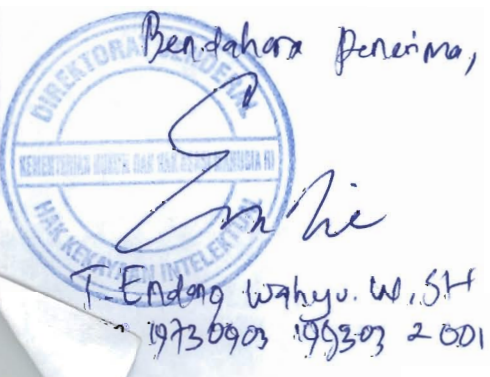 Bendahara Penerima,
DIREKTORAT JENDERAL
KEMENTERIAN HUKUM DAN HAK ASASI MANUSIA RI
HAK KEKAYAAN INTELEKTUAL
T. Endang Wahyu. W, SH
19730903 199303 2 001